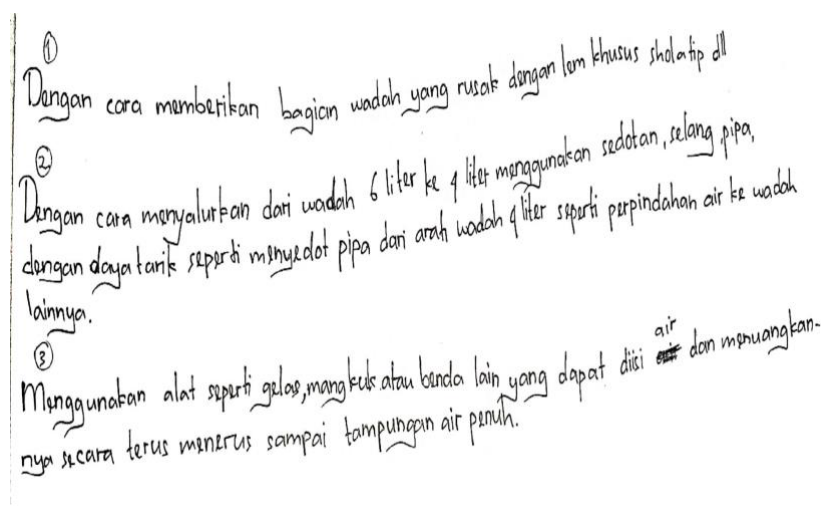 ①
Dengan cara memberikan bagian wadah yang rusak dengan lem khusus sholatip dll
②
Dengan cara menyalurkan dari wadah 6 liter ke 9 liter menggunakan sedotan, selang, pipa,
dengan daya tarik seperti menyedot pipa dari arah wadah 9 liter seperti perpindahan air ke wadah
lainnya.
③
Menggunakan alat seperti gelas, mangkuk atau benda lain yang dapat diisi air dan menuangkan-
nya secara terus menerus sampai tampungan air penuh.